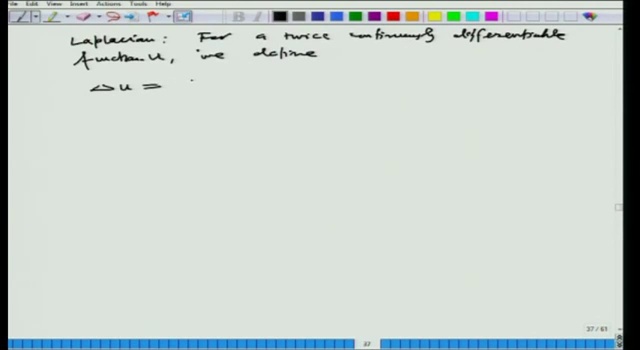 Edit View Insert Actions Tools Help
Laplacian: For a twice continuously differentiable
function u, we define
Δu =
37 / 61
37